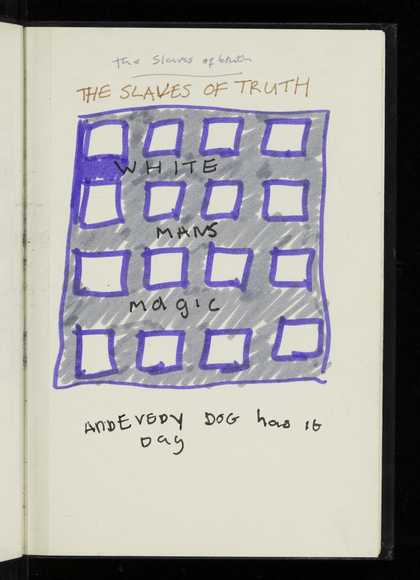 the Slaves of truth
THE SLAVES OF TRUTH
WHITE
MANS
magic
AndEVEDY DOG has it
Day